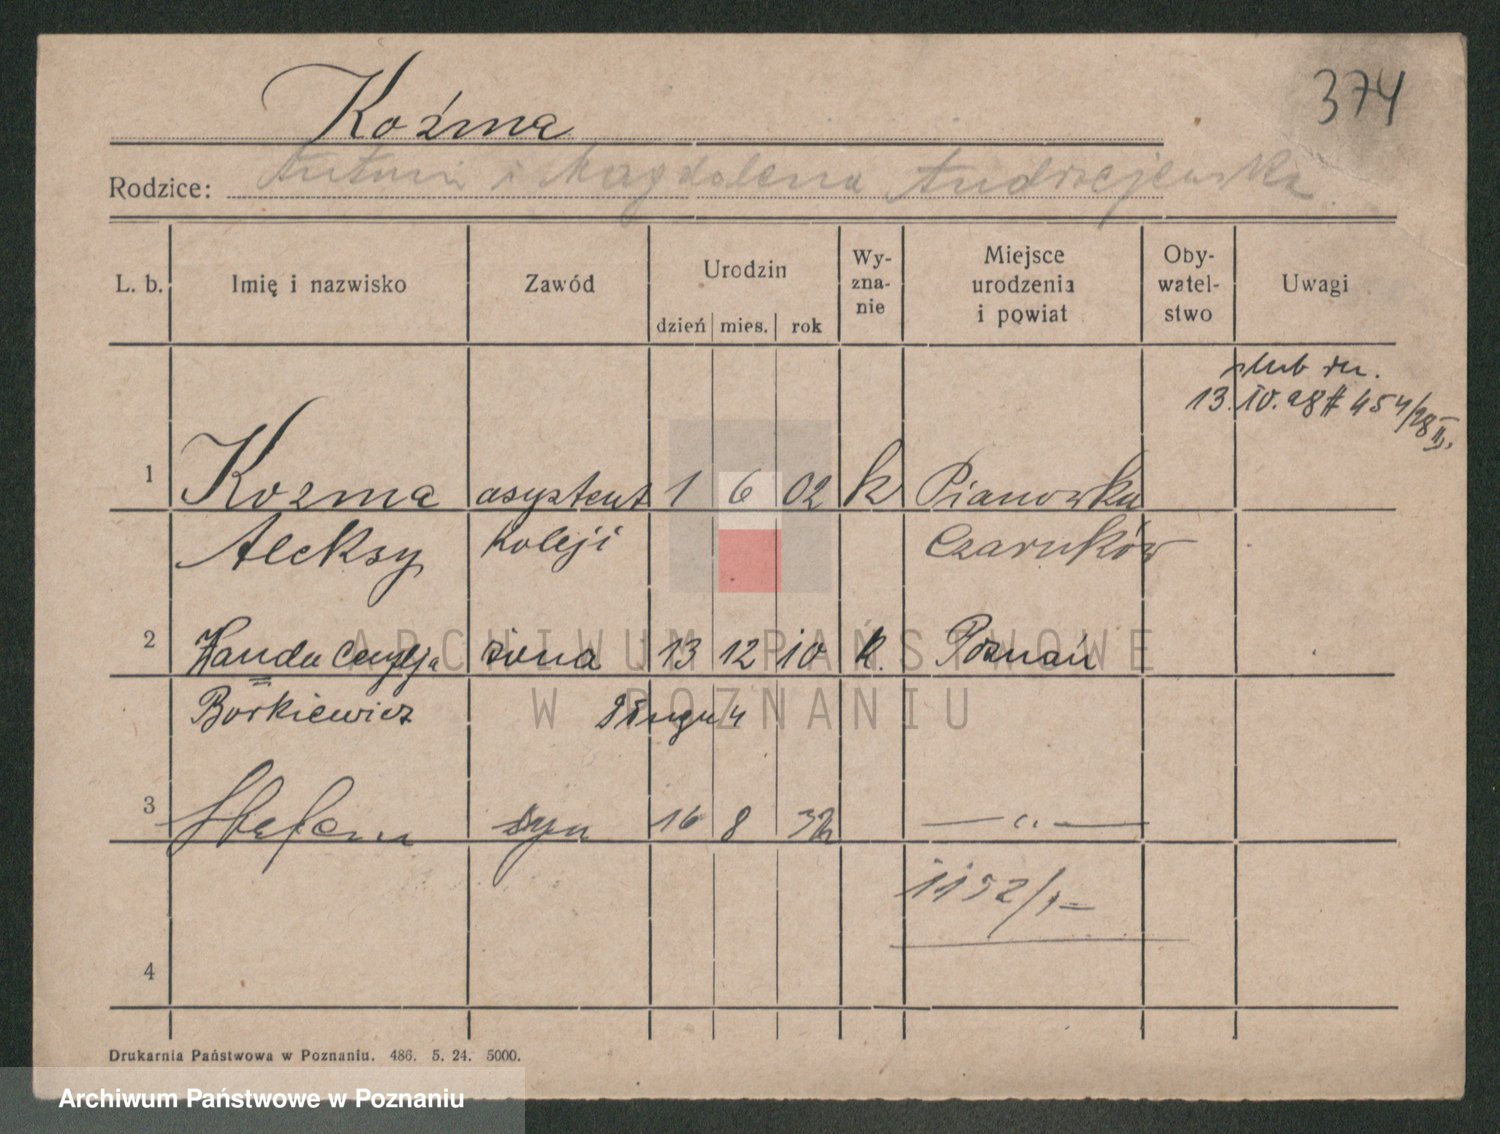 374
Koźma
Rodzice: Antoni i Magdalena Andrzejewska
L. b. Imię i nazwisko Zawód Urodzin dzień mies. rok Wy-zna-nie Miejsce urodzenia i powiat Oby-watel-stwo Uwagi
ślub dn.
13. IV. 28 # 454/28 II.
1 Kozma asystent 1 6 02 k Pianówka
Aleksy Koleji Czarnków
2 Wanda żona 13 12 10 k. Poznań
Borkiewicz
3 Stefan syn 16 8 32 — " —
1152/1-
4
Drukarnia Państwowa w Poznaniu. 486. 5. 24. 5000.
ARCHIWUM PAŃSTWOWE
W POZNANIU
Archiwum Państwowe w Poznaniu